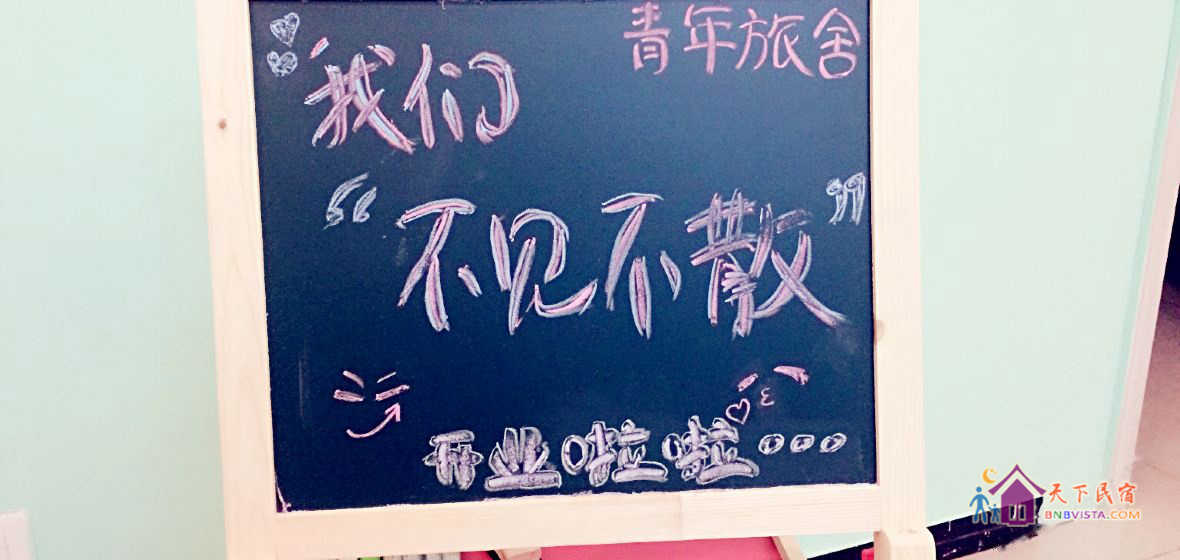 青年旅舍
我们
“不见不散”
开业啦啦...
天下民宿
BNBVISTA.COM